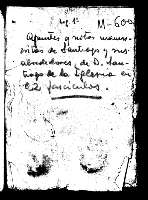 Leg. 1º M-600
Apuntes y notas manus-
critas de Santiago y sus
alrededores, de D. San-
tiago de la Iglesia en
22 fascículos.